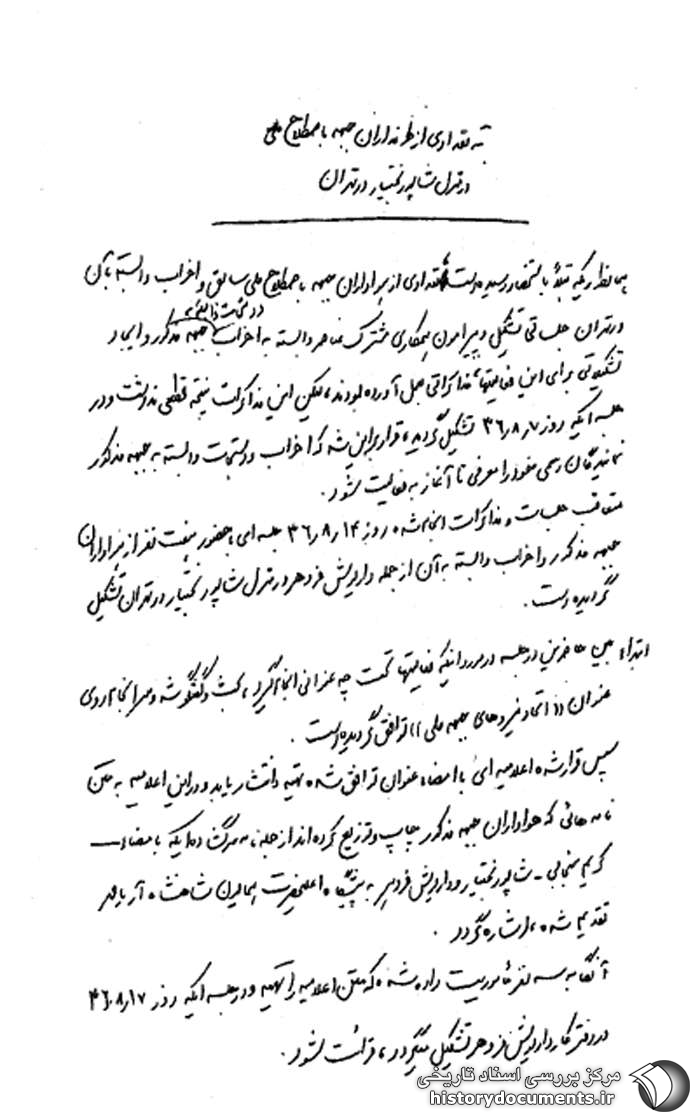 تعدادی از طرفداران جبهه باصطلاح ملی
در منزل شاپور بختیار در تهران
همانطوریکه قبلاً باستحضار رسیده است تعدادی از هواداران جبهه باصطلاح ملی سابق و احزاب وابسته بآن
در تهران جلساتی تشکیل و پیرامون همکاری مشترک عناصر وابسته به احزاب جبهه مذکور و ایجاد
تشکیلاتی برای این فعالیتها، مذاکراتی بعمل آورده بودند، لیکن این مذاکرات نتیجه قطعی نداشت و در
جلسه ایکه روز ۳۶٫۸٫۷ تشکیل گردید، قرار بر این شد که احزاب و دستجات وابسته به جبهه مذکور
نمایندگان رسمی خود را معرفی تا آغاز به فعالیت شود.
متعاقب جلسات و مذاکرات انجام شده روز ۳۶٫۸٫۱۴ جلسه ای با حضور هفت نفر از هواداران
جبهه مذکور و احزاب وابسته به آن از جمله داریوش فروهر در منزل شاپور بختیار در تهران تشکیل
گردیده است.
ابتداء بین حاضرین در جلسه در مورد اینکه فعالیتها تحت چه عنوانی انجام گیرد، بحث و گفتگو شد و سرانجام روی
عنوان ((اتحاد نیروهای جبهه ملی)) توافق گردیده است.
سپس قرار شد اعلامیه ای با امضاء عنوان توافق شده تهیه و انتشار یابد و در این اعلامیه به متن
نامه هائی که هواداران جبهه مذکور چاپ و توزیع کرده اند از جمله نامه سرگشاده ایکه با امضاء
کریم سنجابی - شاپور بختیار و داریوش فروهر به پیشگاه اعلیحضرت همایون شاهنشاه آریامهر
تقدیم شده، اشاره گردد.
آنگاه به سه نفر مأموریت داده شد که متن اعلامیه را تهیه و در جلسه ایکه روز ۳۶٫۸٫۱۷
در دفتر کار داریوش فروهر تشکیل میگردد، قرائت شود.
مرکز بررسی اسناد تاریخی
historydocuments.ir